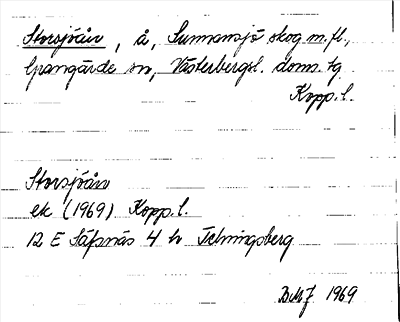 Storsjöån, å, Sunnansjö skog m.fl.,
Grangärde sn, Västerbergsl. doms. tg
Kopp. l.
Storsjöån
ek (1969) Kopp. l.
12 E Säfsnäs 4 h Tetningsberg
1969